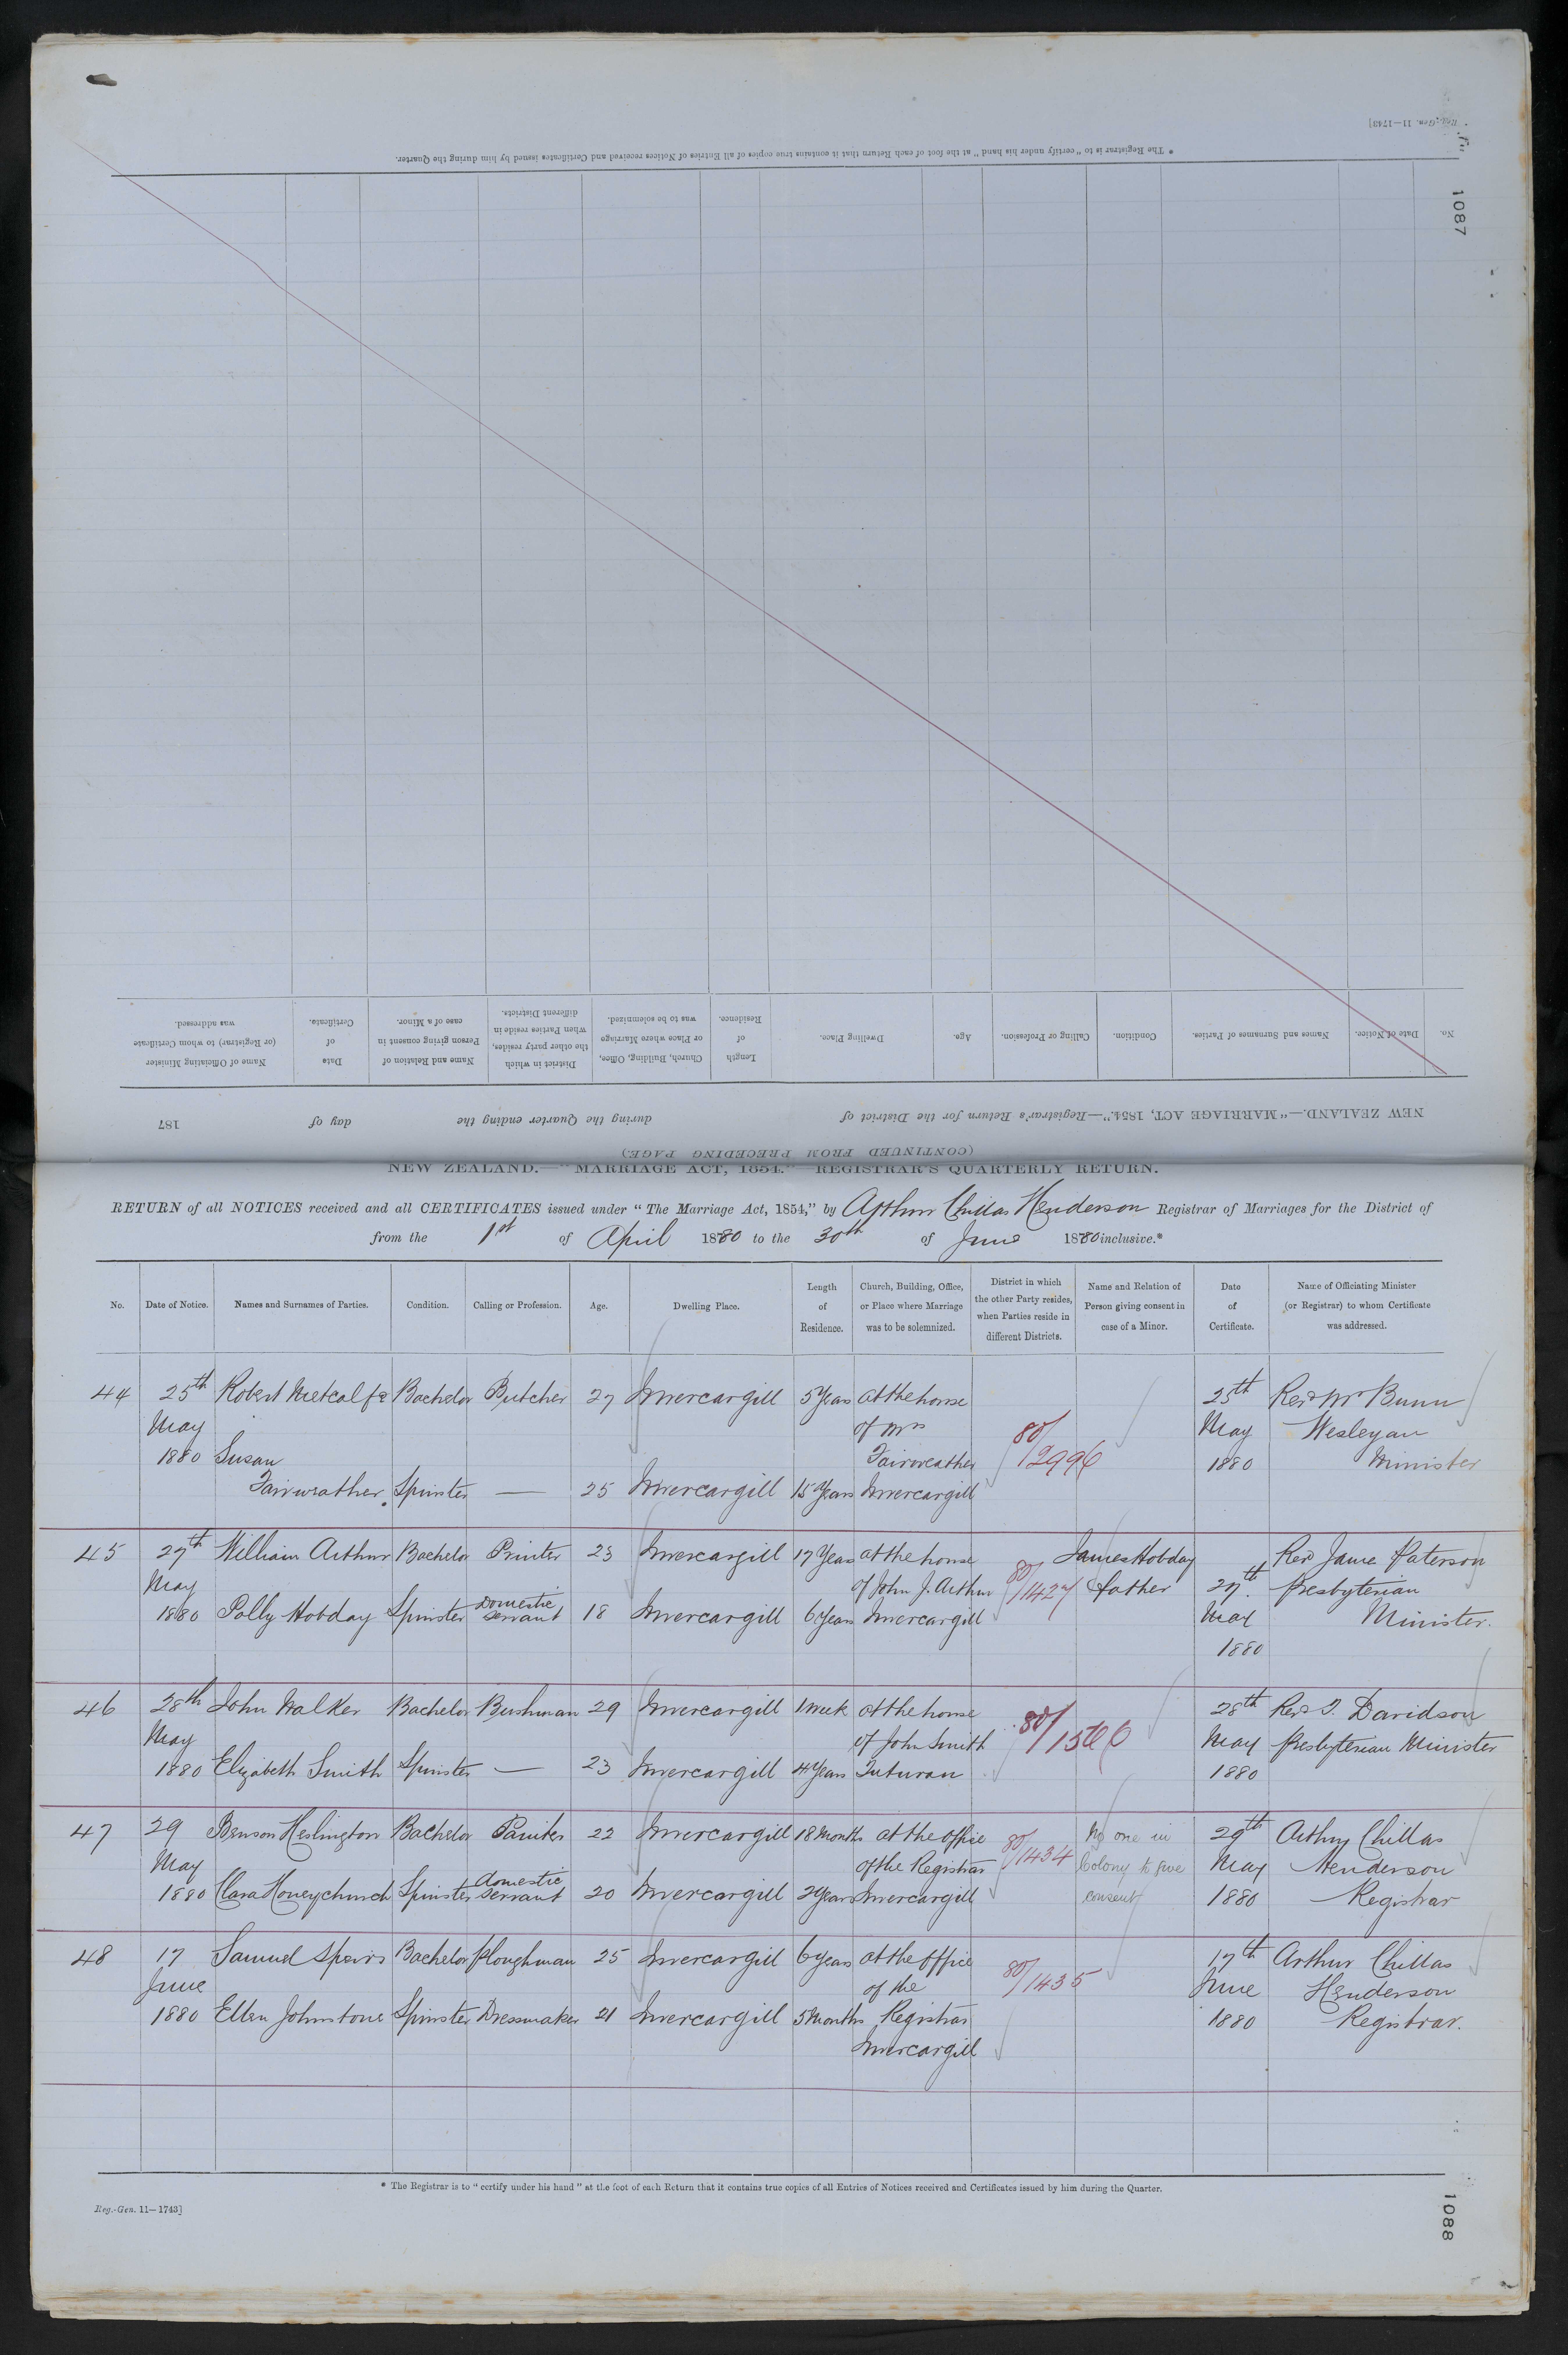 Reg.-Gen. 11—1743]
* The Registrar is to "certify under his hand" at the foot of each Return that it contains true copies of all Entries of Notices received and Certificates issued by him during the Quarter.
1087
No. Date of Notice. Names and Surnames of Parties. Condition. Calling or Profession. Age. Dwelling Place. Length of Residence. Church, Building, Office, or Place where Marriage was to be solemnized. District in which the other party resides, when Parties reside in different Districts. Name and Relation of Person giving consent in case of a Minor. Date of Certificate. Name of Officiating Minister (or Registrar) to whom Certificate was addressed.
NEW ZEALAND.—"MARRIAGE ACT, 1854."—Registrar's Return for the District of during the Quarter ending the day of 187
(CONTINUED FROM PRECEDING PAGE)
NEW ZEALAND.—"MARRIAGE ACT, 1854."—REGISTRAR'S QUARTERLY RETURN.
RETURN of all NOTICES received and all CERTIFICATES issued under "The Marriage Act, 1854," by Arthur Chillas Henderson Registrar of Marriages for the District of
from the 1st of April 1880 to the 30th of June 1880 inclusive.*
No. Date of Notice. Names and Surnames of Parties. Condition. Calling or Profession. Age. Dwelling Place. Length of Residence. Church, Building, Office, or Place where Marriage was to be solemnized. District in which the other Party resides, when Parties reside in different Districts. Name and Relation of Person giving consent in case of a Minor. Date of Certificate. Name of Officiating Minister (or Registrar) to whom Certificate was addressed.
44 25th Robert Metcalfe Bachelor Butcher 27 Invercargill 5 Years at the house 25th Revd Mr Bunn
May of Mrs 80/2996 May Wesleyan
1880 Susan Fairweather 1880 Minister
Fairweather. Spinster — 25 Invercargill 15 Years Invercargill
45 27th William Arthur Bachelor Printer 23 Invercargill 17 Years at the house James Hobday Revd Jame Paterson
May of John J. Arthur 80/1427 father 27th Presbyterian
1880 Polly Hobday Spinster domestic servant 18 Invercargill 6 Years Invercargill May Minister.
1880
46 28th John Walker Bachelor Bushman 29 Invercargill 1 week at the house 28th Revd J. Davidson
May of John Smith 80/1566 May Presbyterian Minister
1880 Elizabeth Smith Spinster — 23 Invercargill 4 Years Tuturau 1880
47 29 Benson Heslington Bachelor Painter 22 Invercargill 18 Months at the office No one in 29th Arthur Chillas
May of the Registrar 80/1434 Colony to give May Henderson
1880 Clara Honeychurch Spinster domestic servant 20 Invercargill 2 Years Invercargill consent 1880 Registrar
48 17 Samuel Speirs Bachelor Ploughman 25 Invercargill 6 years at the office 17th Arthur Chillas
June of the 80/1435 June Henderson
1880 Ellen Johnstone Spinster Dressmaker 21 Invercargill 5 Months Registrar 1880 Registrar.
Invercargill
* The Registrar is to "certify under his hand" at the foot of each Return that it contains true copies of all Entries of Notices received and Certificates issued by him during the Quarter.
Reg.-Gen. 11—1743]
1088